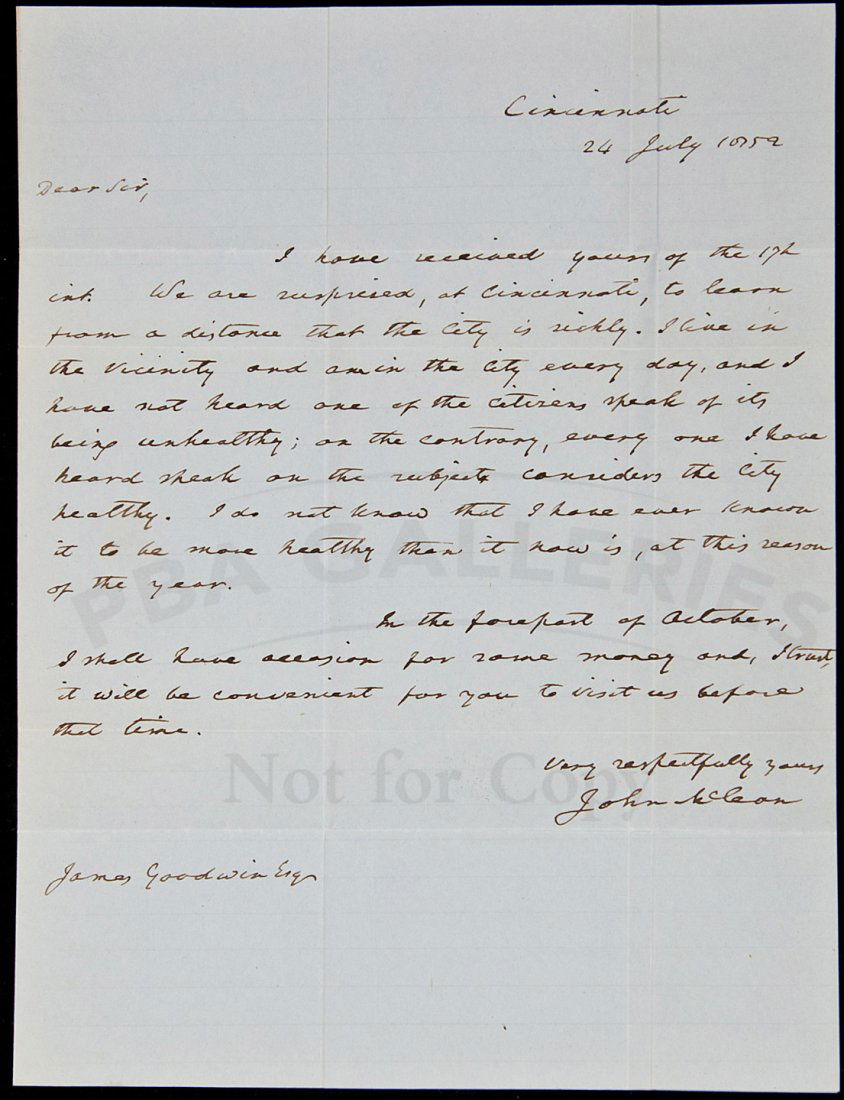 Cincinnati
24 July 1852
Dear Sir,
I have received yours of the 17th
int. We are surprised, at Cincinnati, to learn
from a distance that the City is sickly. I live in
the vicinity and am in the City every day, and I
have not heard one of the citizens speak of its
being unhealthy; on the contrary, every one I have
heard speak on the subject considers the City
healthy. I do not know that I have ever known
it to be more healthy than it now is, at this season
of the year.
In the forepart of October,
I shall have occasion for some money and, I trust,
it will be convenient for you to visit us before
that time.
Very respectfully yours
John McLean
James Goodwin Esq
PBA GALLERIES
Not for Copy